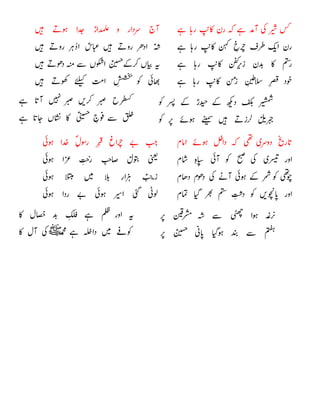 کس شیر کی آمد ہے کہ رن کانپ رہا ہے
رن ایک طرف چرخ کہن کانپ رہا ہے
رستم کا بدن زیر کفن کانپ رہا ہے
خود قصرِ سلاطینِ زمن کانپ رہا ہے
شمشیر بکف دیکھ کے حیدر کے پسر کو
جبریل لرزتے ہیں سمیٹے ہوئے پر کو
آج سردار و علمدار جدا ہوتے ہیں
شہ ادھر روتے ہیں عباسؑ ادھر روتے ہیں
یہ بیاں کرکے حسینؑ اشکوں سے منہ دھوتے ہیں
بھائی کو بخششِ امت کیلیے کھوتے ہیں
کسطرح صبر کریں صبر نہیں آتا ہے
خلق سے فوجِ حسینی کا نشاں جاتا ہے
تاریخ دوسری تھی کہ داخل ہوئے امام
اور تیسری کی صبح کو آئی سپاہِ شام
چوتھی کو شمر کے آنے کی ہوئی دھوم دھام
اور پانچویں کو دشتِ ستم بھر گیا تمام
نرغہ ہوا چھٹی سے شہِ مشرقین پر
ہفتم سے بند ہوگیا پانی حسینؑ پر
جب بے چراغ قبرِ رسولؐ خدا ہوئی
یعنی بتولؑ صاحبِ رختِ عزا ہوئی
زینبؑ ہزار بلا میں مبتلا ہوئی
لوٹی گئی اسیر ہوئی بے ردا ہوئی
یہ اور ظلم ہے فلکِ بد خصال کا
کوفے میں داخلہ ہے محمدﷺ کی آل کا